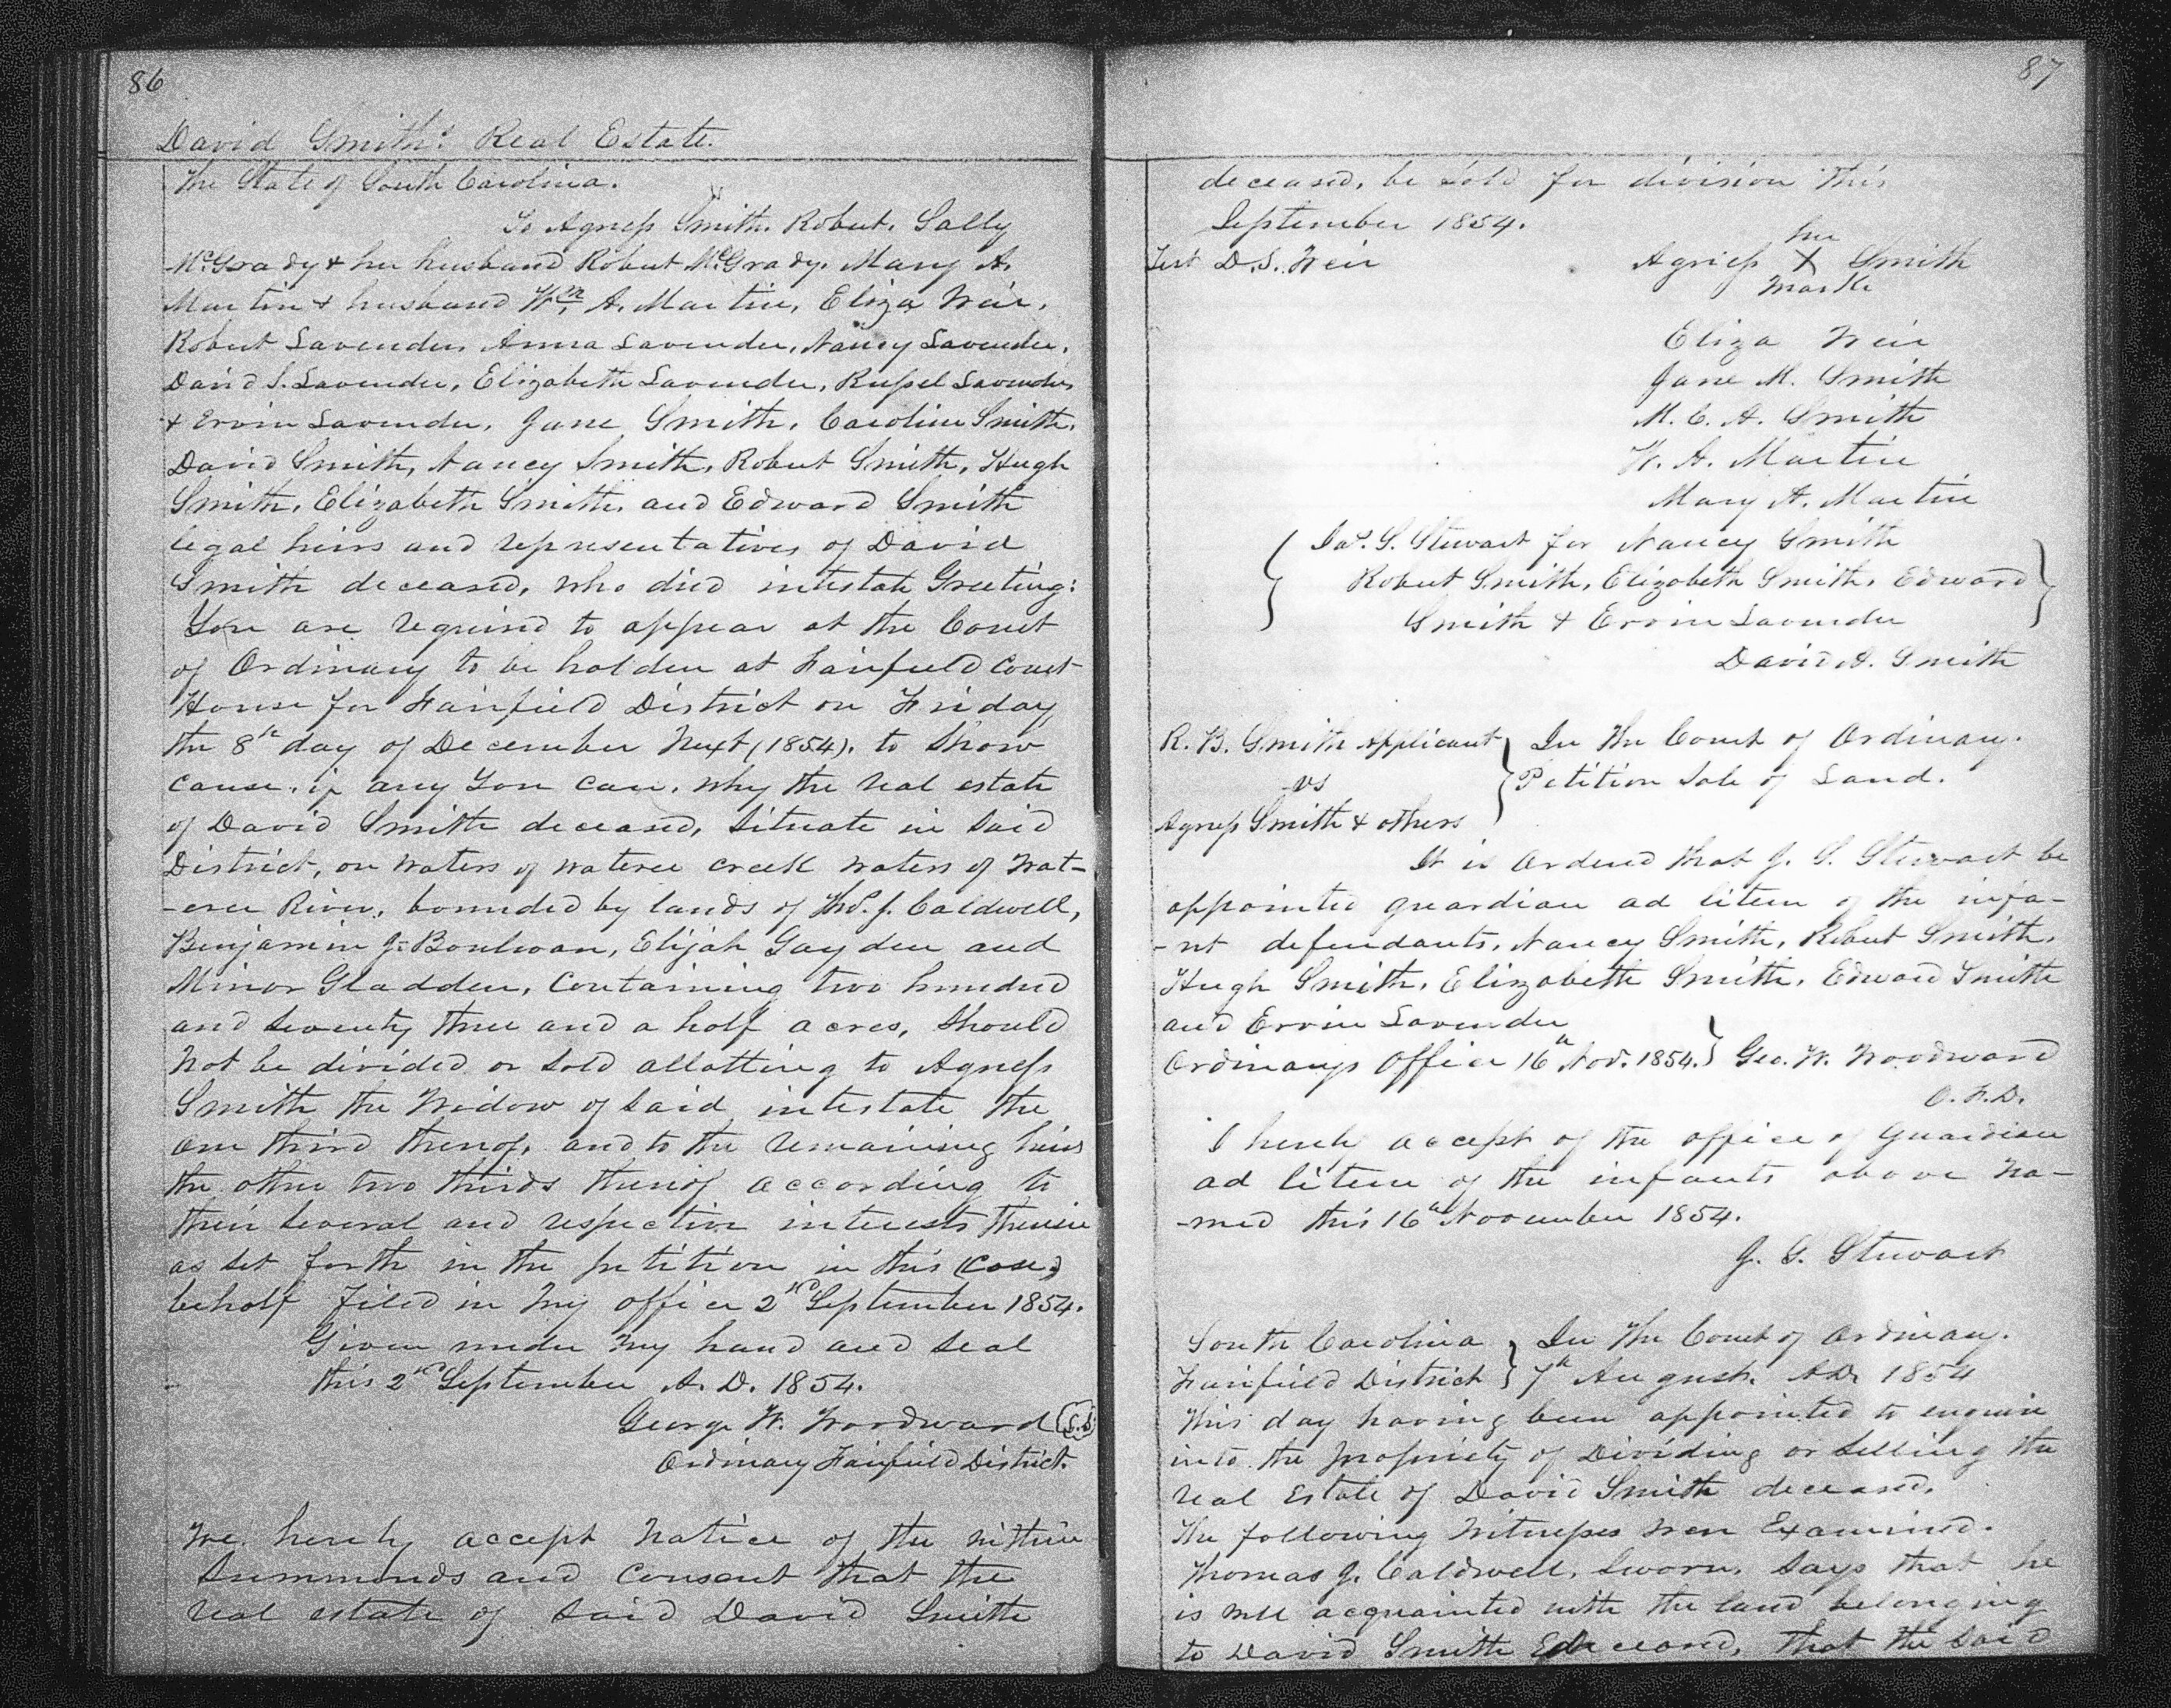 86
David Smith's Real Estate.
The State of South Carolina.
To Agness Smith. Robert. Sally
McGrady & her husband Robert McGrady. Mary A.
Martin & husband Wm. A. Martin, Eliza Weir,
Robert Lavender, Anna Lavender, Nancy Lavender,
David S. Lavender, Elizabeth Lavender, Russel Lavender,
& Ervin Lavender, Jane Smith, Caroline Smith,
David Smith, Nancy Smith, Robert Smith, Hugh
Smith, Elizabeth Smith, and Edward Smith
legal heirs and representatives of David
Smith deceased, who died intestate Greeting:
You are required to appear at the Court
of Ordinary to be holden at Fairfield Court
House for Fairfield District on Friday
the 8th day of December Next (1854). to Show
cause, if any You can, why the real estate
of David Smith deceased, Situate in Said
District, on waters of wateree creek waters of Wat-
-eree River, bounded by lands of Thos. J. Caldwell,
Benjamin J. Boulwar, Elijah Gayden and
Minor Gladden, Containing two hundred
and Seventy three and a half acres, Should
Not be divided or Sold allotting to Agness
Smith the Widow of Said intestate the
one third thereof, and to the remaining heirs
the other two thirds thereof according to
their Several and respective interests therein
as Set forth in the petition in this (Case)
behalf filed in My office 2nd September 1854.
Given under My hand and Seal
this 2nd September A. D. 1854.
George W. Woodward L.S.
Ordinary Fairfield District.
We hereby accept Notice of the within
Summonds and Consent that the
real estate of Said David Smith
87
deceased, be Sold for division this
September 1854.
her
Test D. S. Weir Agness X Smith
mark
Eliza Weir
Jane M. Smith
M. C. A. Smith
W. A. Martin
Mary A. Martin
Jas. S. Stewart for Nancy Smith
Robert Smith, Elizabeth Smith, Edward
Smith & Ervin Lavender
David A. Smith
R. B. Smith Applicant } In the Court of Ordinary.
vs } Petition Sale of Land.
Agness Smith & others
It is Ordered that J. S. Stewart be
appointed guardian ad litem of the infa-
-nt defendants, Nancy Smith, Robert Smith,
Hugh Smith, Elizabeth Smith, Edward Smith
and Ervin Lavender
Ordinarys Office 16th Nov. 1854. } Geo. W. Woodward
O. F. D.
I hereby accept of the office of Guardian
ad litem of the infants above na-
-med this 16th November 1854.
J. S. Stewart
South Carolina } In the Court of Ordinary.
Fairfield District } 7th August. AD. 1854
This day having been appointed to enquire
into the propriety of Dividing or Selling the
real Estate of David Smith deceased.
The following Witnesses were Examined.
Thomas J. Caldwell, Sworn, Says that he
is well acquainted with the land belonging
to David Smith deceased, that the Said